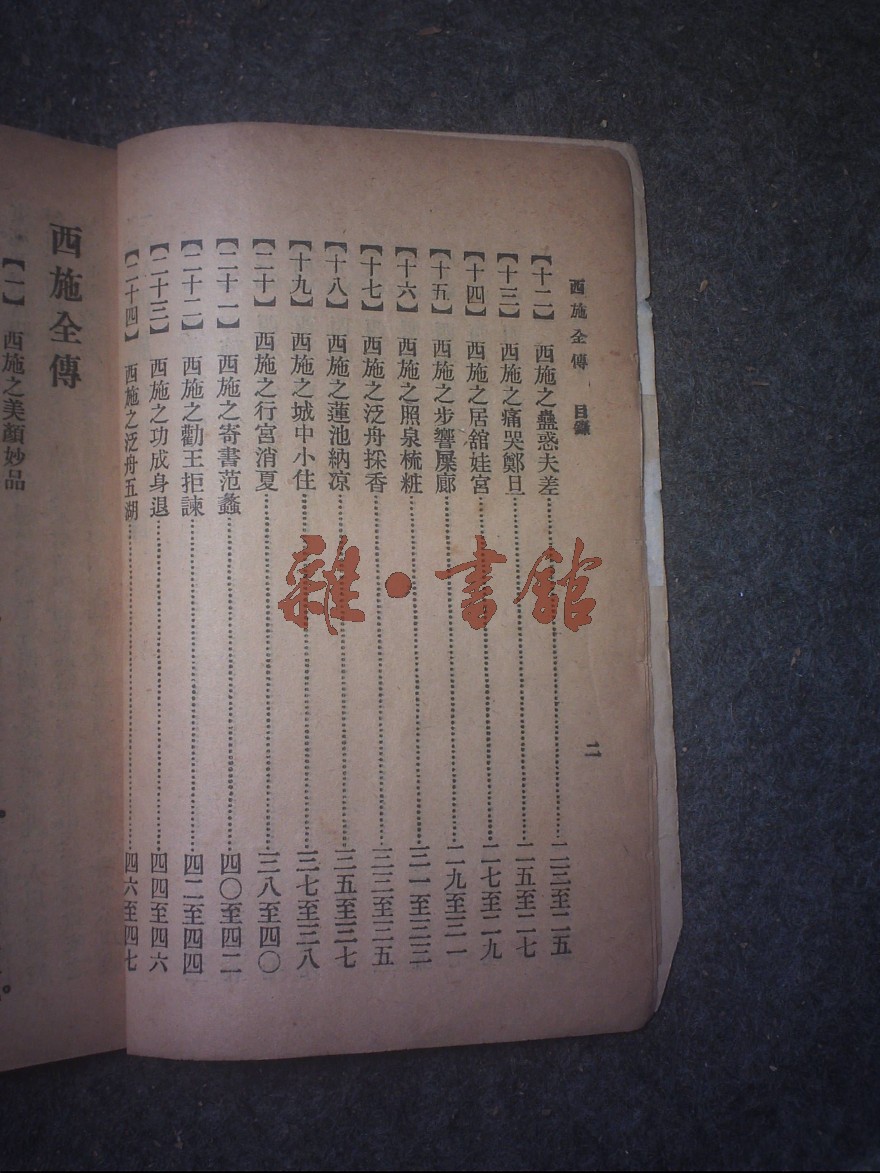 西施全傳 目錄 二
【十二】 西施之蠱惑夫差 二三至二五
【十三】 西施之痛哭鄭旦 二五至二七
【十四】 西施之居舘娃宮 二七至二九
【十五】 西施之步響屟廊 二九至三一
【十六】 西施之照泉梳粧 三一至三三
【十七】 西施之泛舟採香 三三至三五
【十八】 西施之蓮池納凉 三五至三七
【十九】 西施之城中小住 三七至三八
【二十】 西施之行宮消夏 三八至四〇
【二十一】 西施之寄書范蠡 四〇至四二
【二十二】 西施之勸王拒諫 四二至四四
【二十三】 西施之功成身退 四四至四六
【二十四】 西施之泛舟五湖 四六至四七
西施全傳
【一】 西施之美顏妙品
雜·書舘